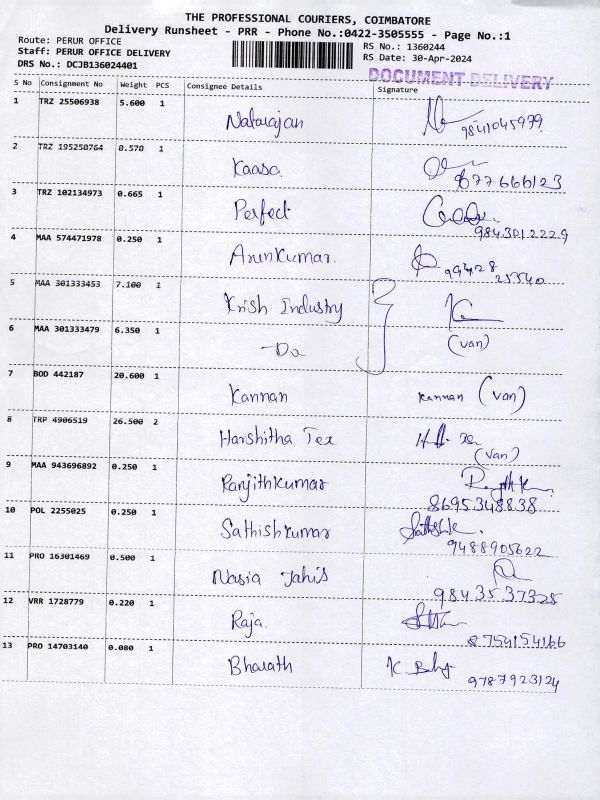 THE PROFESSIONAL COURIERS, COIMBATORE
Delivery Runsheet - PRR - Phone No.:0422-3505555 - Page No.:1
Route: PERUR OFFICE
Staff: PERUR OFFICE DELIVERY
DRS No.: DCJB136024401
RS No.: 1360244
RS Date: 30-Apr-2024
DOCUMENT DELIVERY
S No Consignment No Weight PCS Consignee Details Signature
1 TRZ 25506938 5.600 1 Natarajan 9841045979
2 TRZ 195250764 0.570 1 Kaasa
3 TRZ 102134973 0.665 1 Perfect 9843012229
4 MAA 574471978 0.250 1 ArunKumar. 99428
25540
5 MAA 301333453 7.100 1 Krish Industry
6 MAA 301333479 6.350 1 -Do (van)
7 BOD 442187 20.600 1 Kannan Kannan (van)
8 TRP 4906519 26.500 2 Harshitha Tex (van)
9 MAA 943696892 0.250 1 Ranjithkumar 8695348838
10 POL 2255025 0.250 1 Sathishkumar 9488905622
11 PRO 16301469 0.500 1 9843537325
12 VRR 1728779 0.220 1 Raja. 8754154166
13 PRO 14703140 0.080 1 Bharath 9787923124